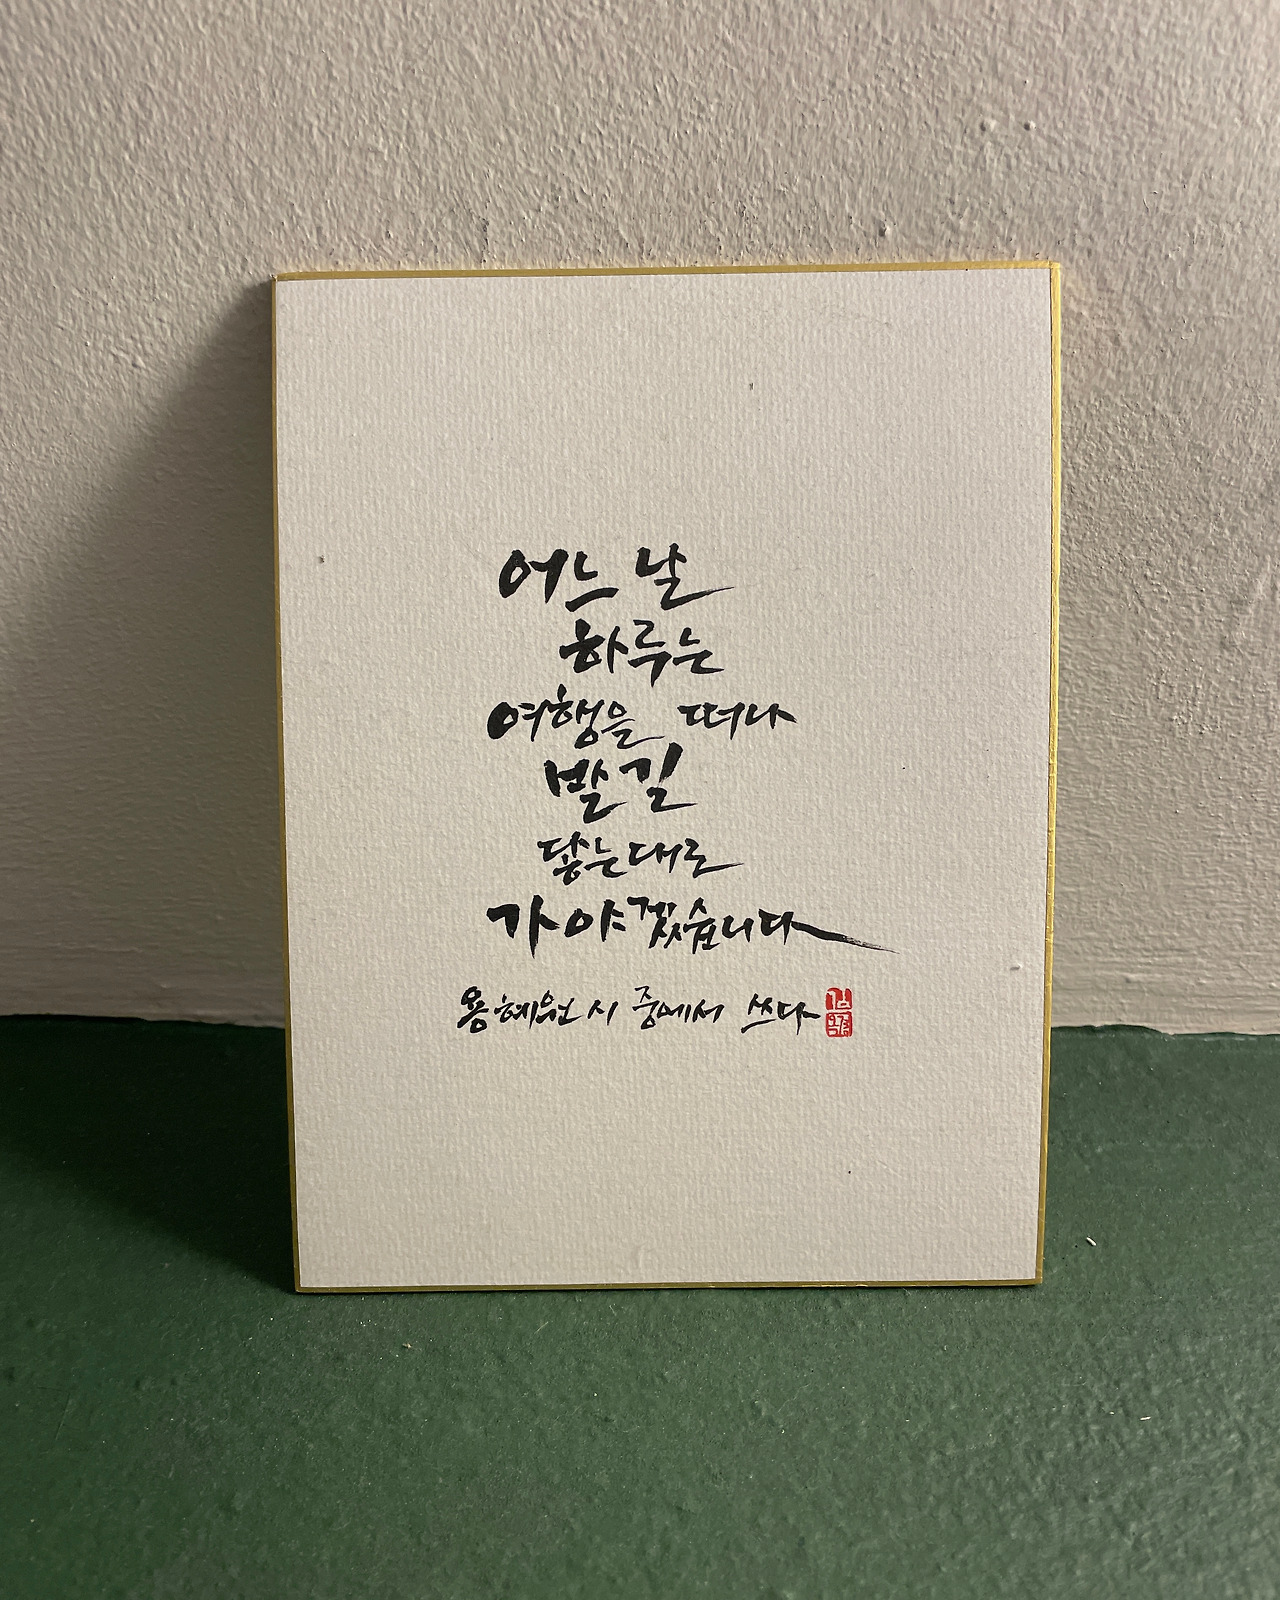 어느 날
하루는
여행을 떠나
발길
닿는대로
가야겠습니다
용혜원 시 중에서 쓰다